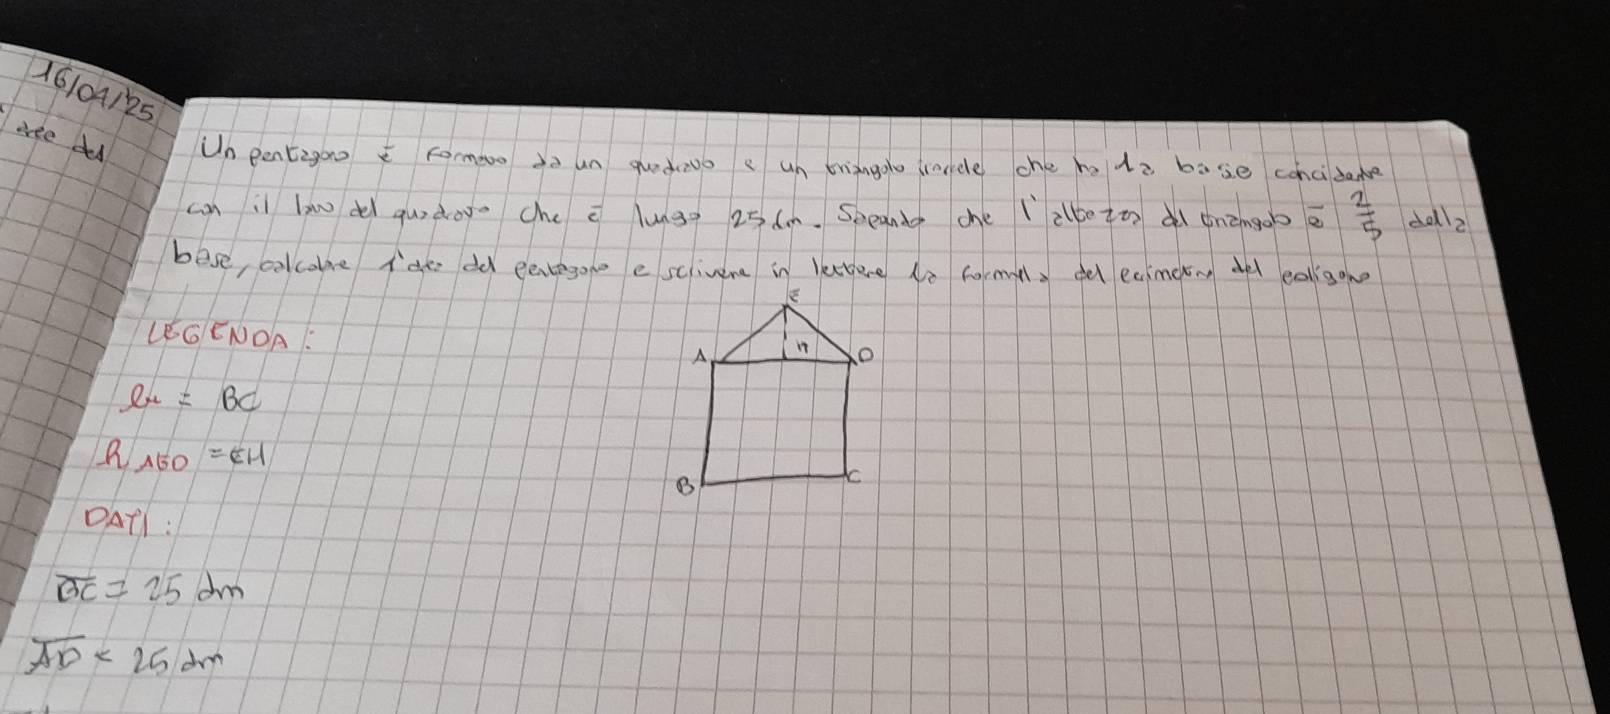 16/04/25
des
Un pentagono è formato da un quadrato e un triangolo isoscele che ha la base coincidente
con il lato del quadrato che è lungo 25 dm. Sapendo che l'altezza del triangolo è 2/5 della
base, calcolare l'area del pentagono e scrivere in lettere la formula del perimetro del poligono
LEGENDA:
E
A H D
= BC
h AED = EH
B C
DATI:
BC = 25 dm
AD = 25 dm